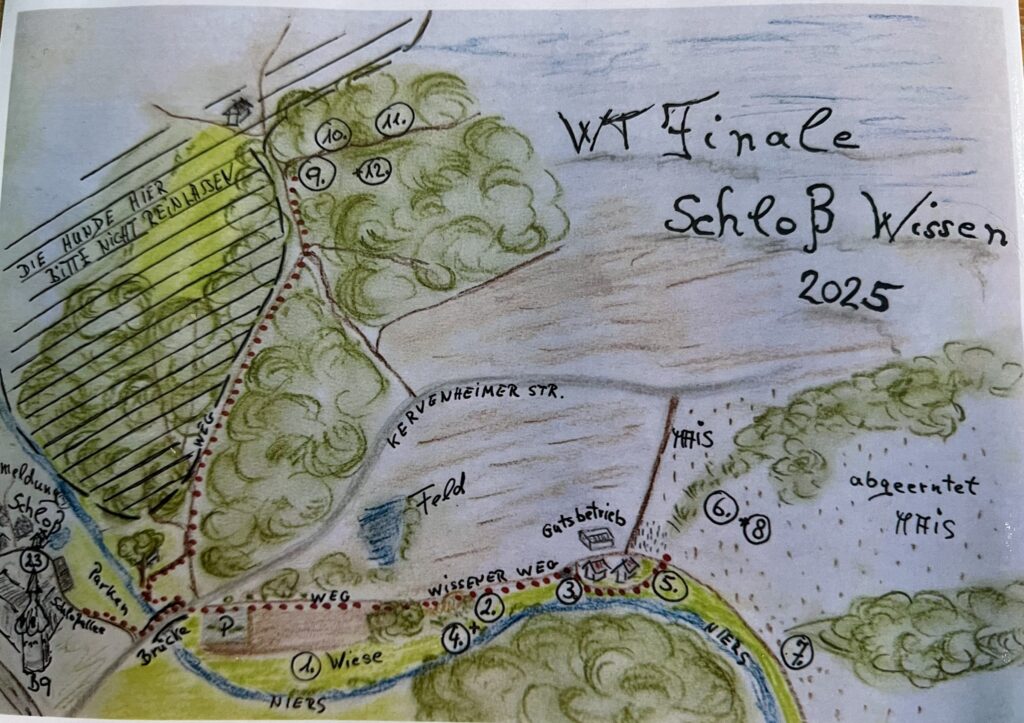 WT Finale
Schloß Wissen
2025
10.
11.
9.
12.
DIE HUNDE HIER
BITTE NICHT REINLASSEN
WEG
KERVENHEIMER STR.
MAIS
abgeerntet
MAIS
Feld
Gutsbetrieb
6.
8
meldung
Schloß
23
Parken
Schloßallee
B9
Brücke
P
WEG
WISSENER WEG
3.
5.
2.
4.
1.
Wiese
7.
NIERS
NIERS